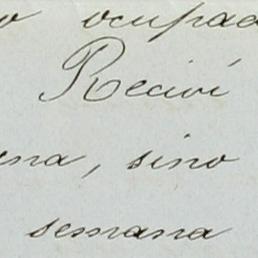 o ocupad
Recivi
ena, sino
semana